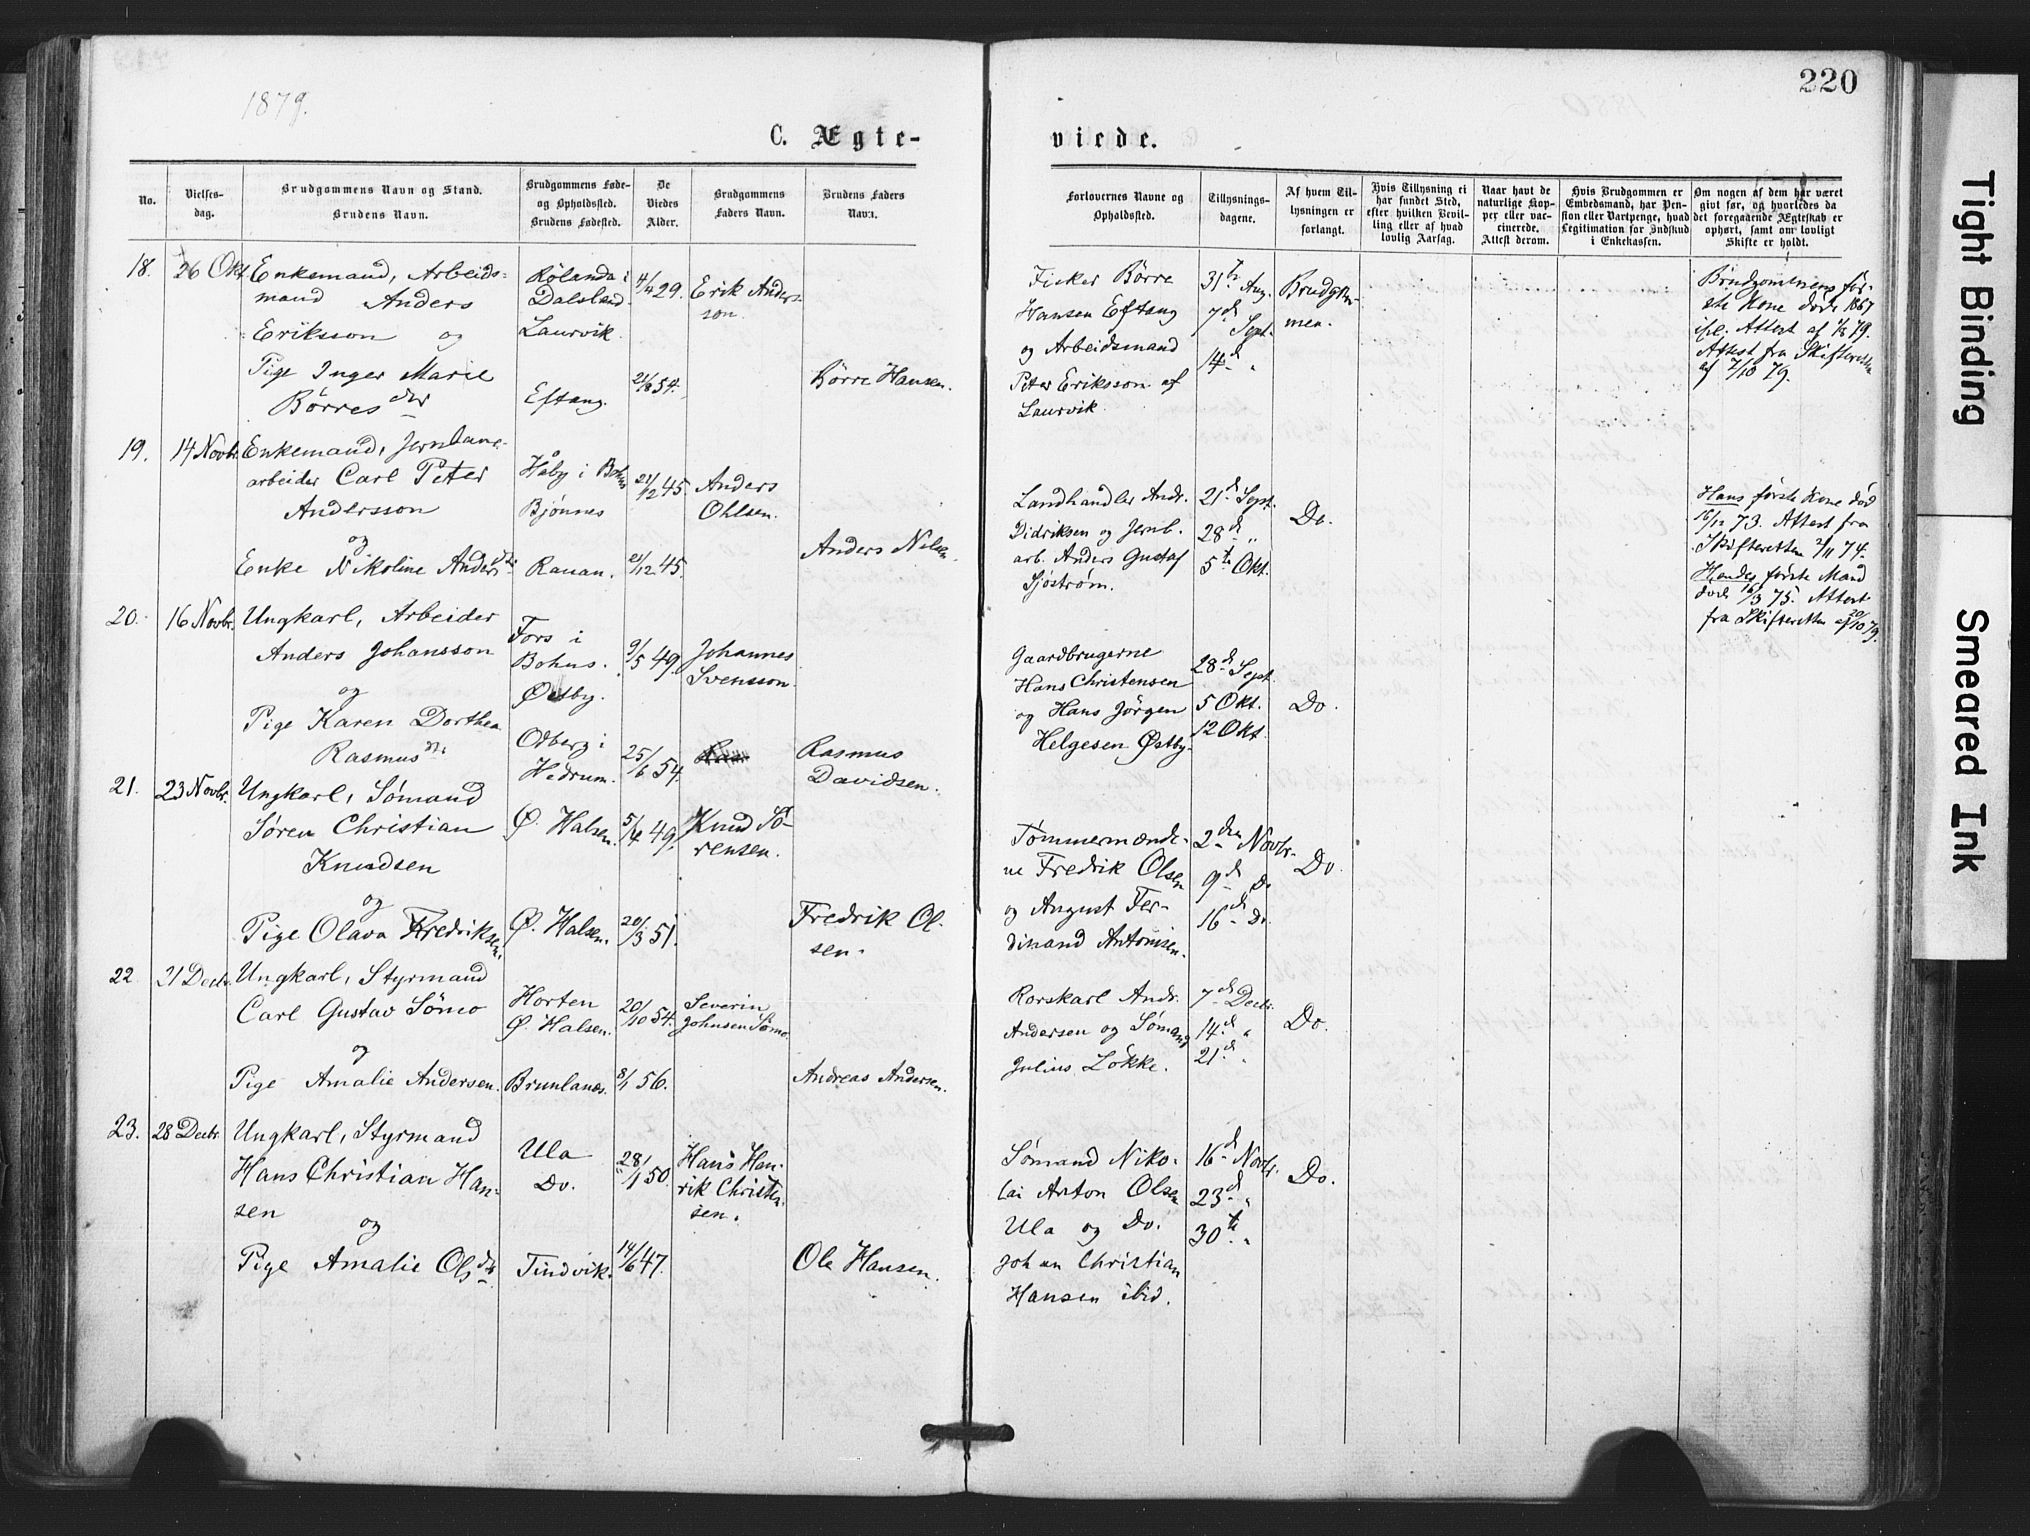 1879.
220
C. Ægte-
viede.
No.
Vielses-
dag.
Brudgommens Navn og Stand.
Brudens Navn.
Brudgommens Føde-
og Opholdsted.
Brudens Fødested.
De
Viedes
Alder.
Brudgommens
Faders Navn.
Brudens Faders
Navn.
Forlovernes Navne og
Opholdsted.
Tillysnings-
dagene.
Af hvem Til-
lysningen er
forlangt.
Hvis Tillysning ei
har fundet Sted,
efter hvilken Bevil-
ling eller af hvad
lovlig Aarsag.
Naar havt de
naturlige Kop-
per eller vac-
cinerede.
Attest derom.
Hvis Brudgommen er
Embedsmand, har Pen-
sion eller Vartpenge, hvad
Legitimation for Indskud
i Enkekassen.
Om nogen af dem har været
givt før, og hvorledes da
det foregaaende Ægteskab er
ophørt, samt om lovligt
Skifte er holdt.
18.
26 Okt.
Enkemand, Arbeids-
mand Anders
Eriksson og
Pige Inger Marie
Børresdtr
Rølanda i
Dalsland
Laurvik.
Eftang.
4/4 29.
21/8 54.
Erik Anders-
son.
Børre Hansen.
Fisker Børre
Hansen Eftang
og Arbeidsmand
Peter Eriksson af
Laurvik.
31te Aug.
7d Sept.
14d "
Brudgom-
men.
Brudgommens før-
ste Kone døde 1867
Attest fra Skifteretten
af 7/10 79.
19.
14 Novbr.
Enkemand, Jernbane-
arbeider Carl Peter
Andersson
og
Enke Nikoline Andersdtr.
Håby i Bohus
Bjønnes
Rauan.
21/12 45.
21/12 45.
Anders
Ohlsen.
Anders Nilsen.
Landhandler Andr.
Didriksen og Jernb.
arb. Anders Gustaf
Sjöström.
21d Sept.
28d "
5te Okt.
Do.
Hans første Kone død
16/12 73. Attest fra
Skifteretten 2/11 74.
Hendes første Mand
døde 16/3 75. Attest
fra Skifteretten af 20/10 79.
20.
16 Novbr.
Ungkarl, Arbeider
Anders Johansson
og
Pige Karen Dorthea
Rasmusdtr
Fors i
Bohus.
Østby.
Odberg i
Hedrum.
9/5 49.
25/6 54.
Johannes
Svensson.
Rasmus
Davidsen.
Gaardbrugerne
Hans Christensen
og Hans Jørgen
Helgesen Østby.
28d Sept.
5 Okt.
12 Okt.
Do.
21.
23 Novbr.
Ungkarl, Sømand
Søren Christian
Knudsen
og
Pige Olava Fredriksen.
Ø. Halsen.
Ø. Halsen.
5/4 49.
20/3 51.
Knud Sø-
rensen.
Fredrik Ol-
sen.
Tømmermænde-
ne Fredrik Olsen
og August Fer-
dinand Antonisen.
2den Novbr.
9d Do
16d Do.
Do
22
21 Decbr.
Ungkarl, Styrmand
Carl Gustav Sømo
og
Pige Amalie Andersen.
Horten
Ø. Halsen.
Brunlanæs.
20/10 54.
8/1 56.
Severin
Johnsen Sømo.
Andreas Andersen.
Rorskarl Andr.
Andersen og Sømand
Julius Løkke.
7d Decbr.
14d "
21d "
Do.
23.
28 Decbr.
Ungkarl, Styrmand
Hans Christian Han-
sen
og
Pige Amalie Olsdtr
Ula
Do.
Tindvik.
28/1 50.
14/6 47.
Hans Hen-
rik Christen-
sen.
Ole Hansen.
Sømand Niko-
lai Anton Olsen
Ula og Do.
Johan Christian
Hansen ibid.
16d Novbr.
23d "
30te "
Do.
Tight Binding
Smeared Ink